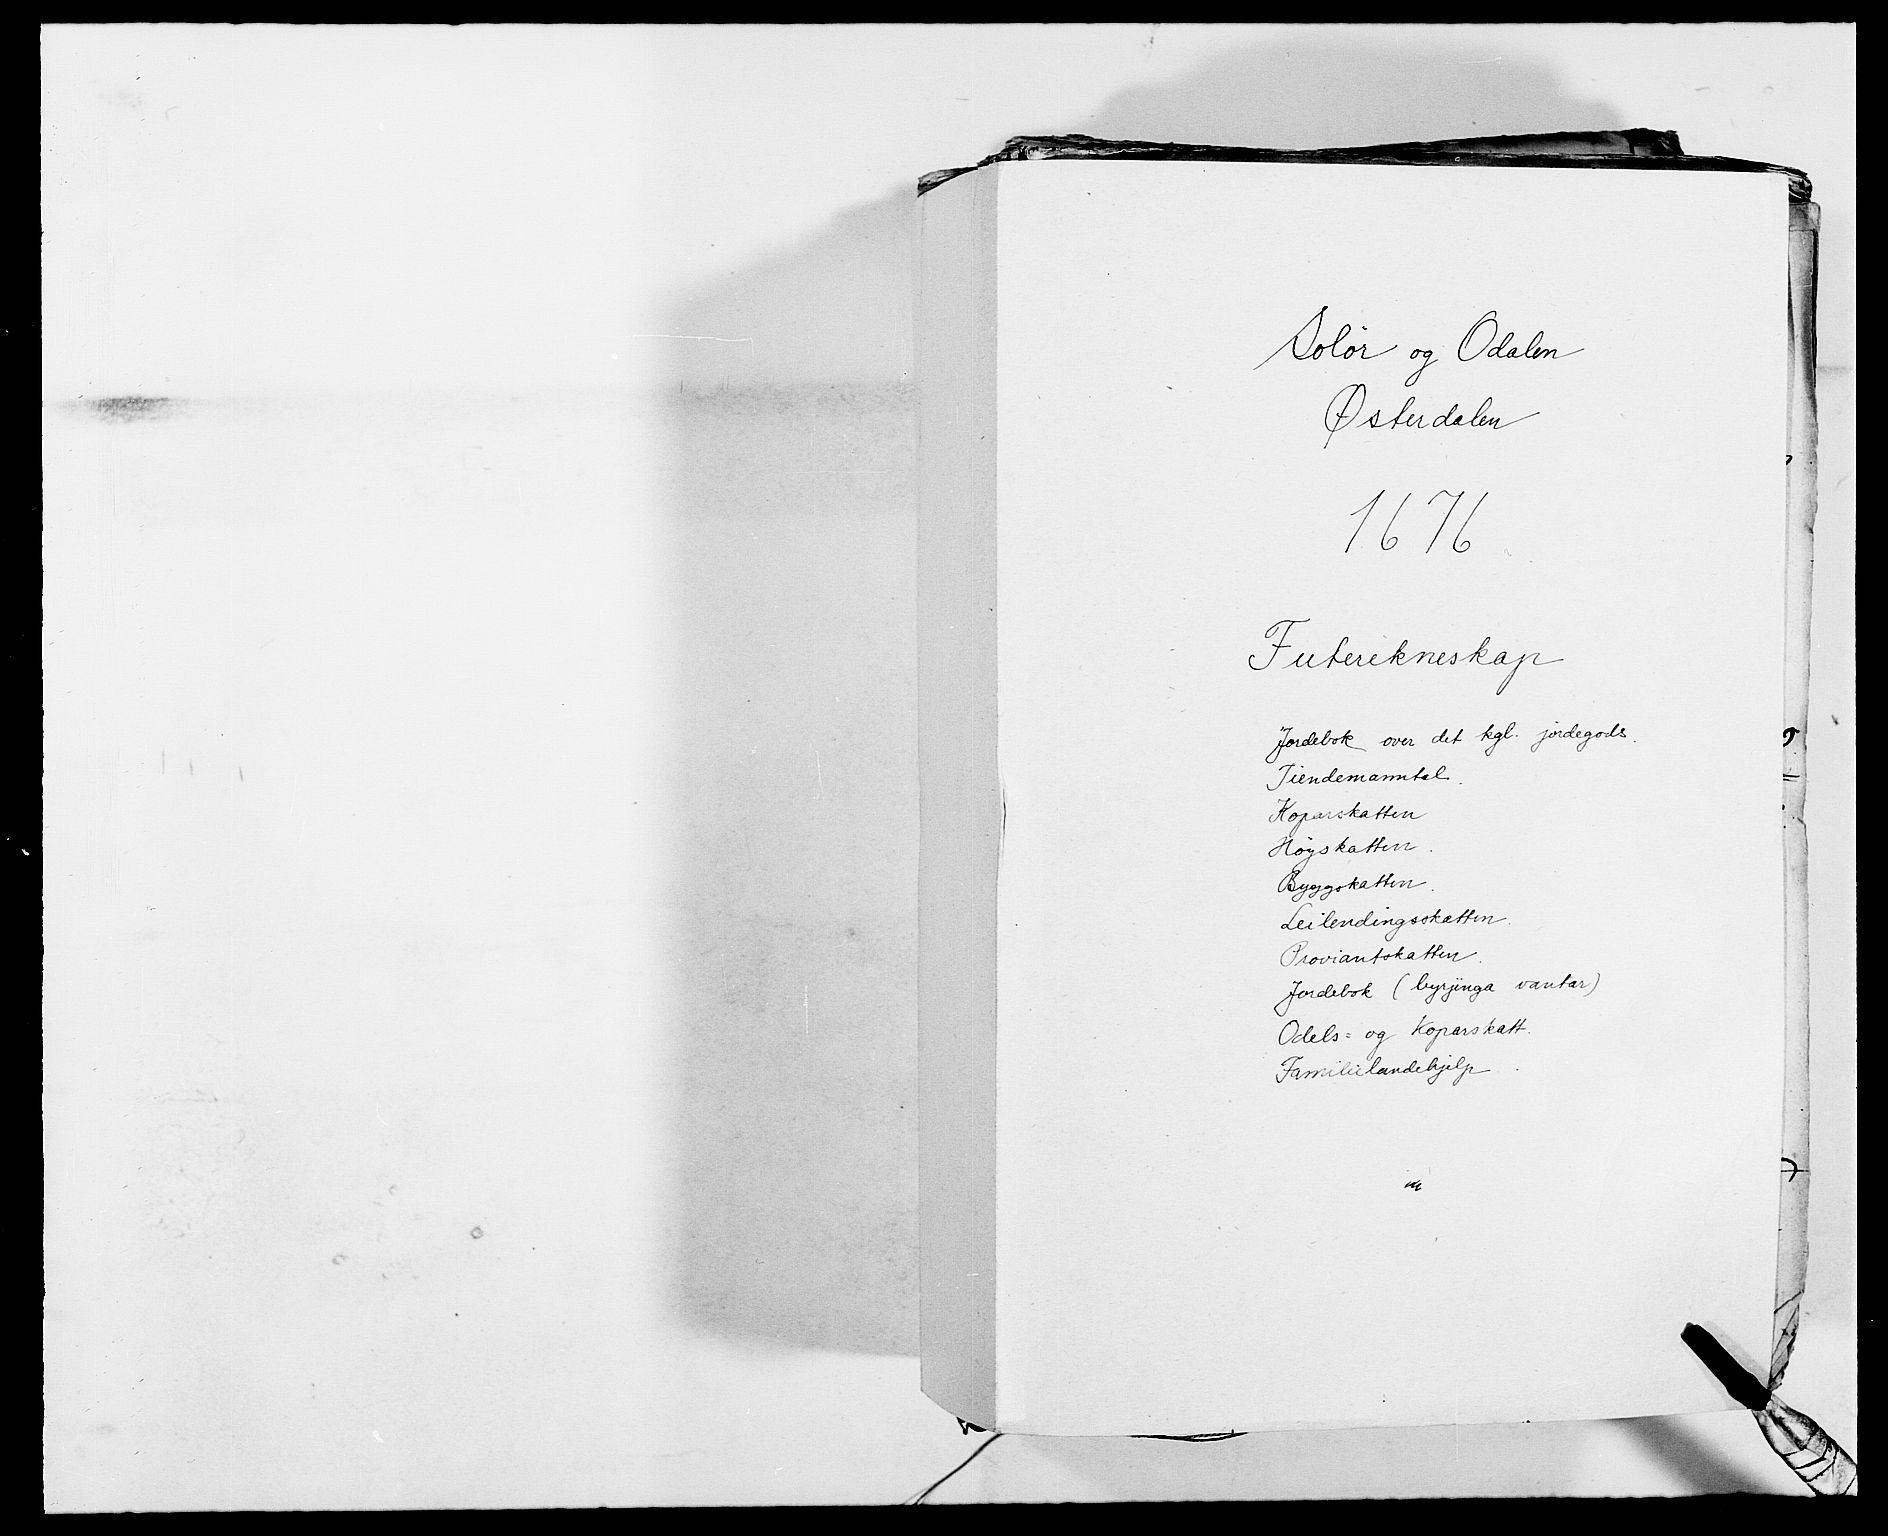 Solør og Odalen
Østerdalen
1676
Futerekneskap
Jordebok over det kgl. jordegods.
Tiendemanntal.
Koparskatten
Høyskatten.
Byggskatten.
Leilendingsskatten.
Proviantskatten.
Jordebok (byrjinga vantar)
Odels= og Koparskatt.
Familielandehjelp.